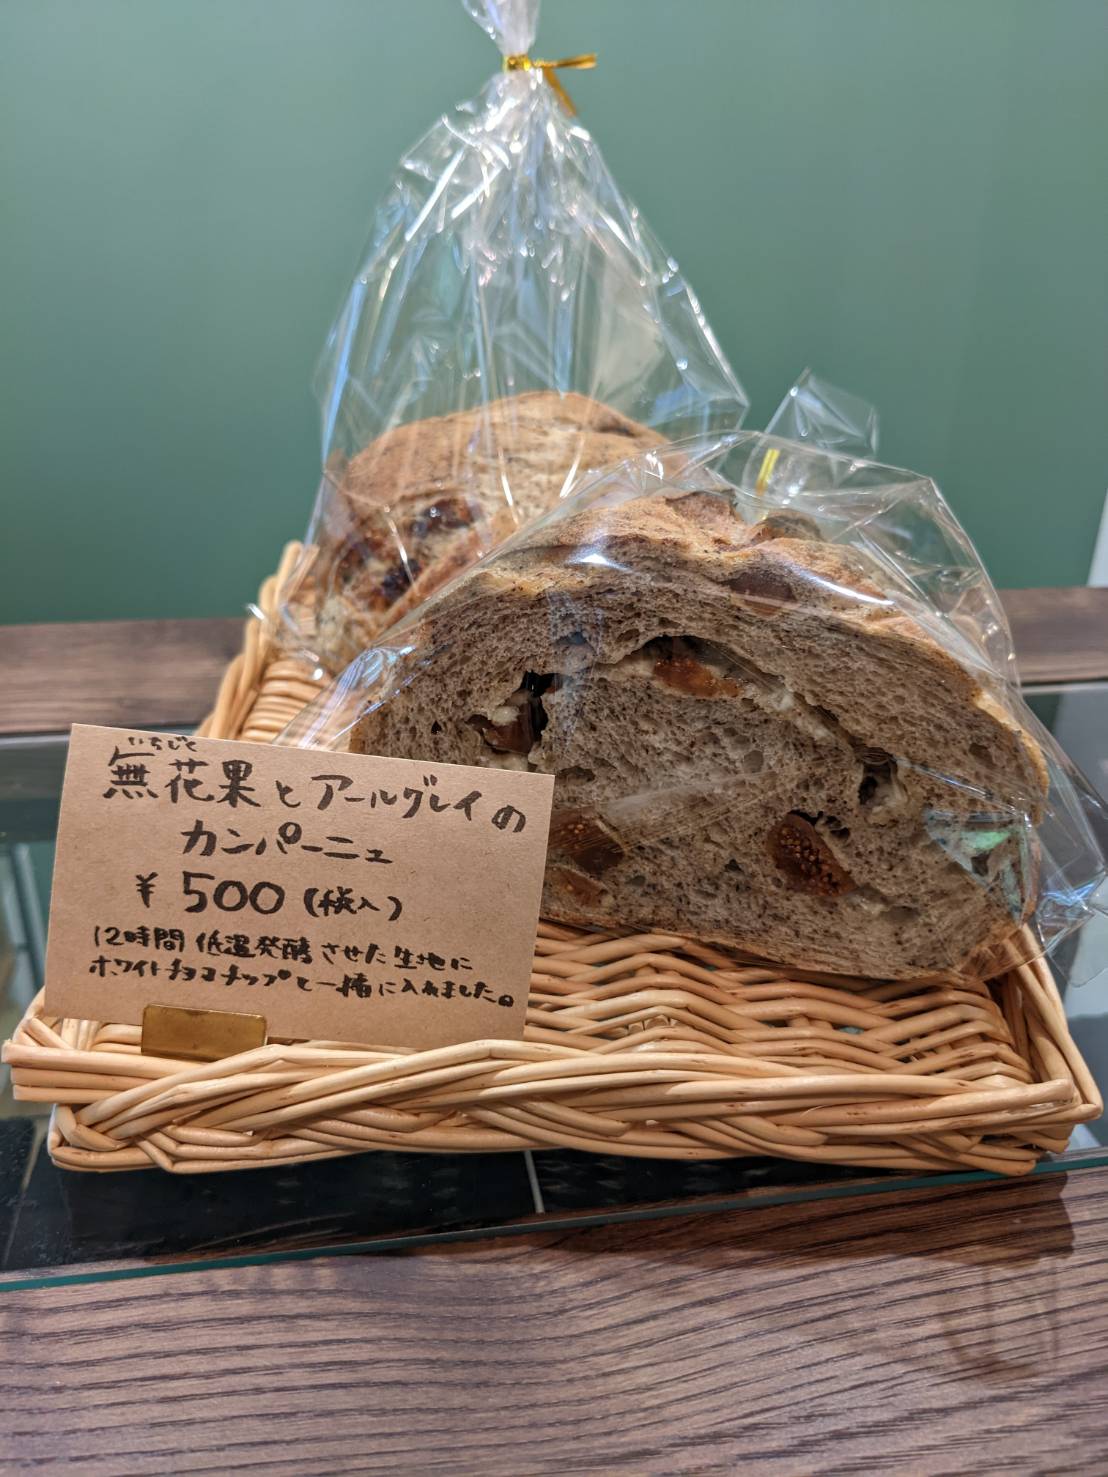 いちじく
無花果とアールグレイの
カンパーニュ
¥500(税入)
12時間低温発酵させた生地に
ホワイトチョコチップと一緒に入れました。